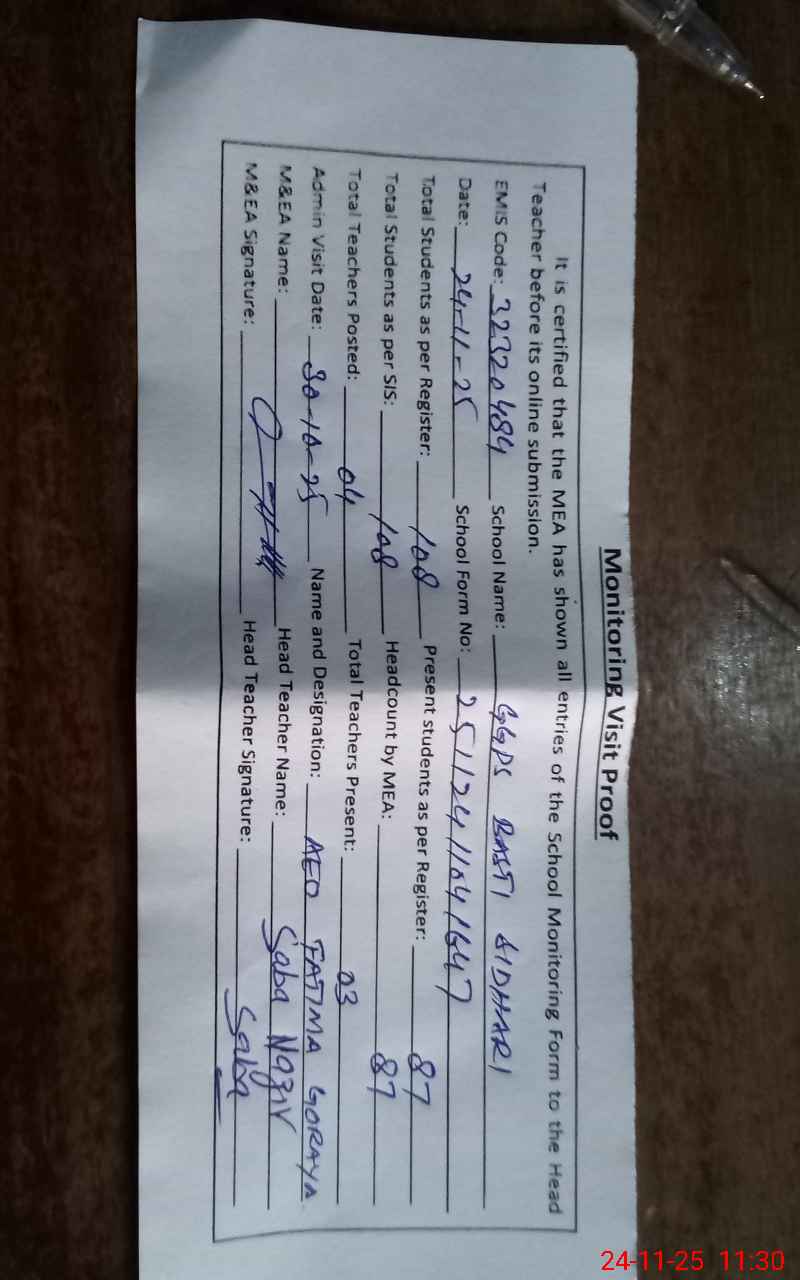 Monitoring Visit Proof
It is certified that the MEA has shown all entries of the School Monitoring Form to the Head
Teacher before its online submission.
EMIS Code: 32320484 School Name: GGPS BASTI SIDHARI
Date: 24-11-25 School Form No: 25112411041647
Total Students as per Register: 108 Present students as per Register: 87
Total Students as per SIS: 108 Headcount by MEA: 87
Total Teachers Posted: 04 Total Teachers Present: 03
Admin Visit Date: 30-10-25 Name and Designation: AEO FATIMA GORAYA
M&EA Name: Head Teacher Name: Saba Nazir
M&EA Signature: Head Teacher Signature: Saba
24-11-25 11:30